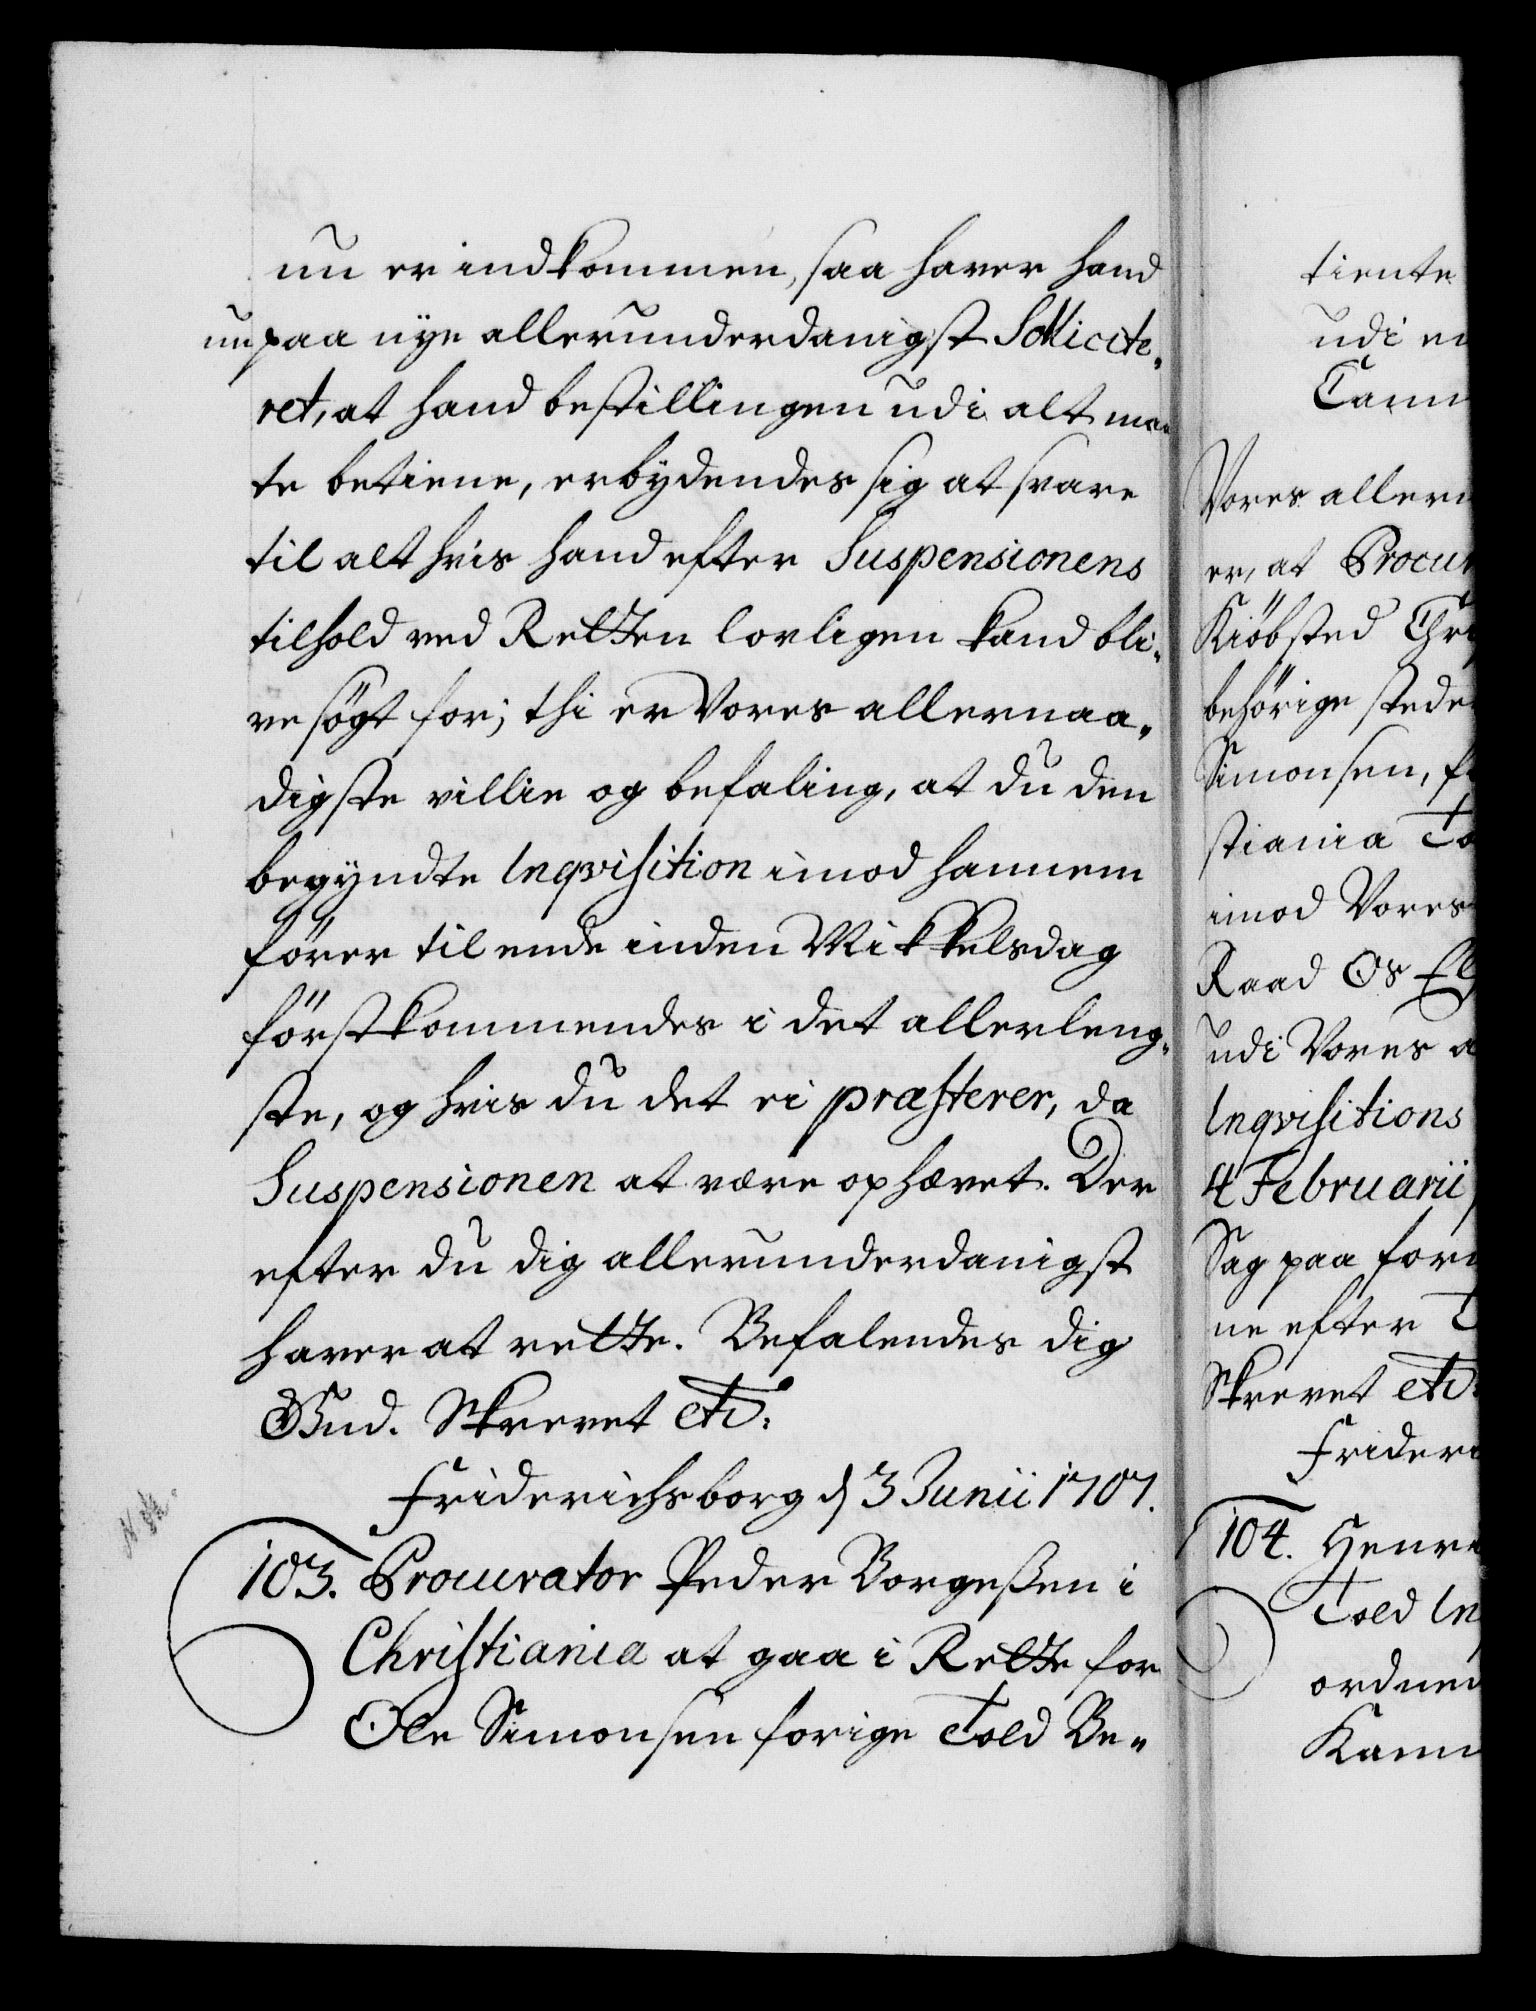 nu er indkommen, saa haver hand
nu paa nye allerunderdanigst Sollicite„
ret, at hand bestillingen udi alt maa„
te betiene, erbydendes sig at svare
til alt hvis hand efter Suspensionens
tilhold ved Retten lovligen kand bli„
ve søgt for; thi er Vores allernaa„
digste villie og befaling, at du den
begyndte Inqvisition imod hannem
fører til ende inden Mikkelsdag
førstkommendes i det allerleng„
ste, og hvis du det ei præsterer, da
Suspensionen at være ophævet. Der
efter du dig allerunderdanigst
haver at rette. Befalendes dig
Gud. Skrevet etc:
Friderichsborg d 3 Junii 1707.
103. Procurator Peder Borgeßen i
Christiania at gaa i Rette for
Ole Simonsen forige Told Be„
tiente
udi
Vores
er, at
Kiøbsted
behørige
Simonsen,
stiania
imod Vores
Raad Os
udi Vores
Inqvisitions
4 Februarii
Sag paa
ne efter
Skrevet etc:
104.
Told